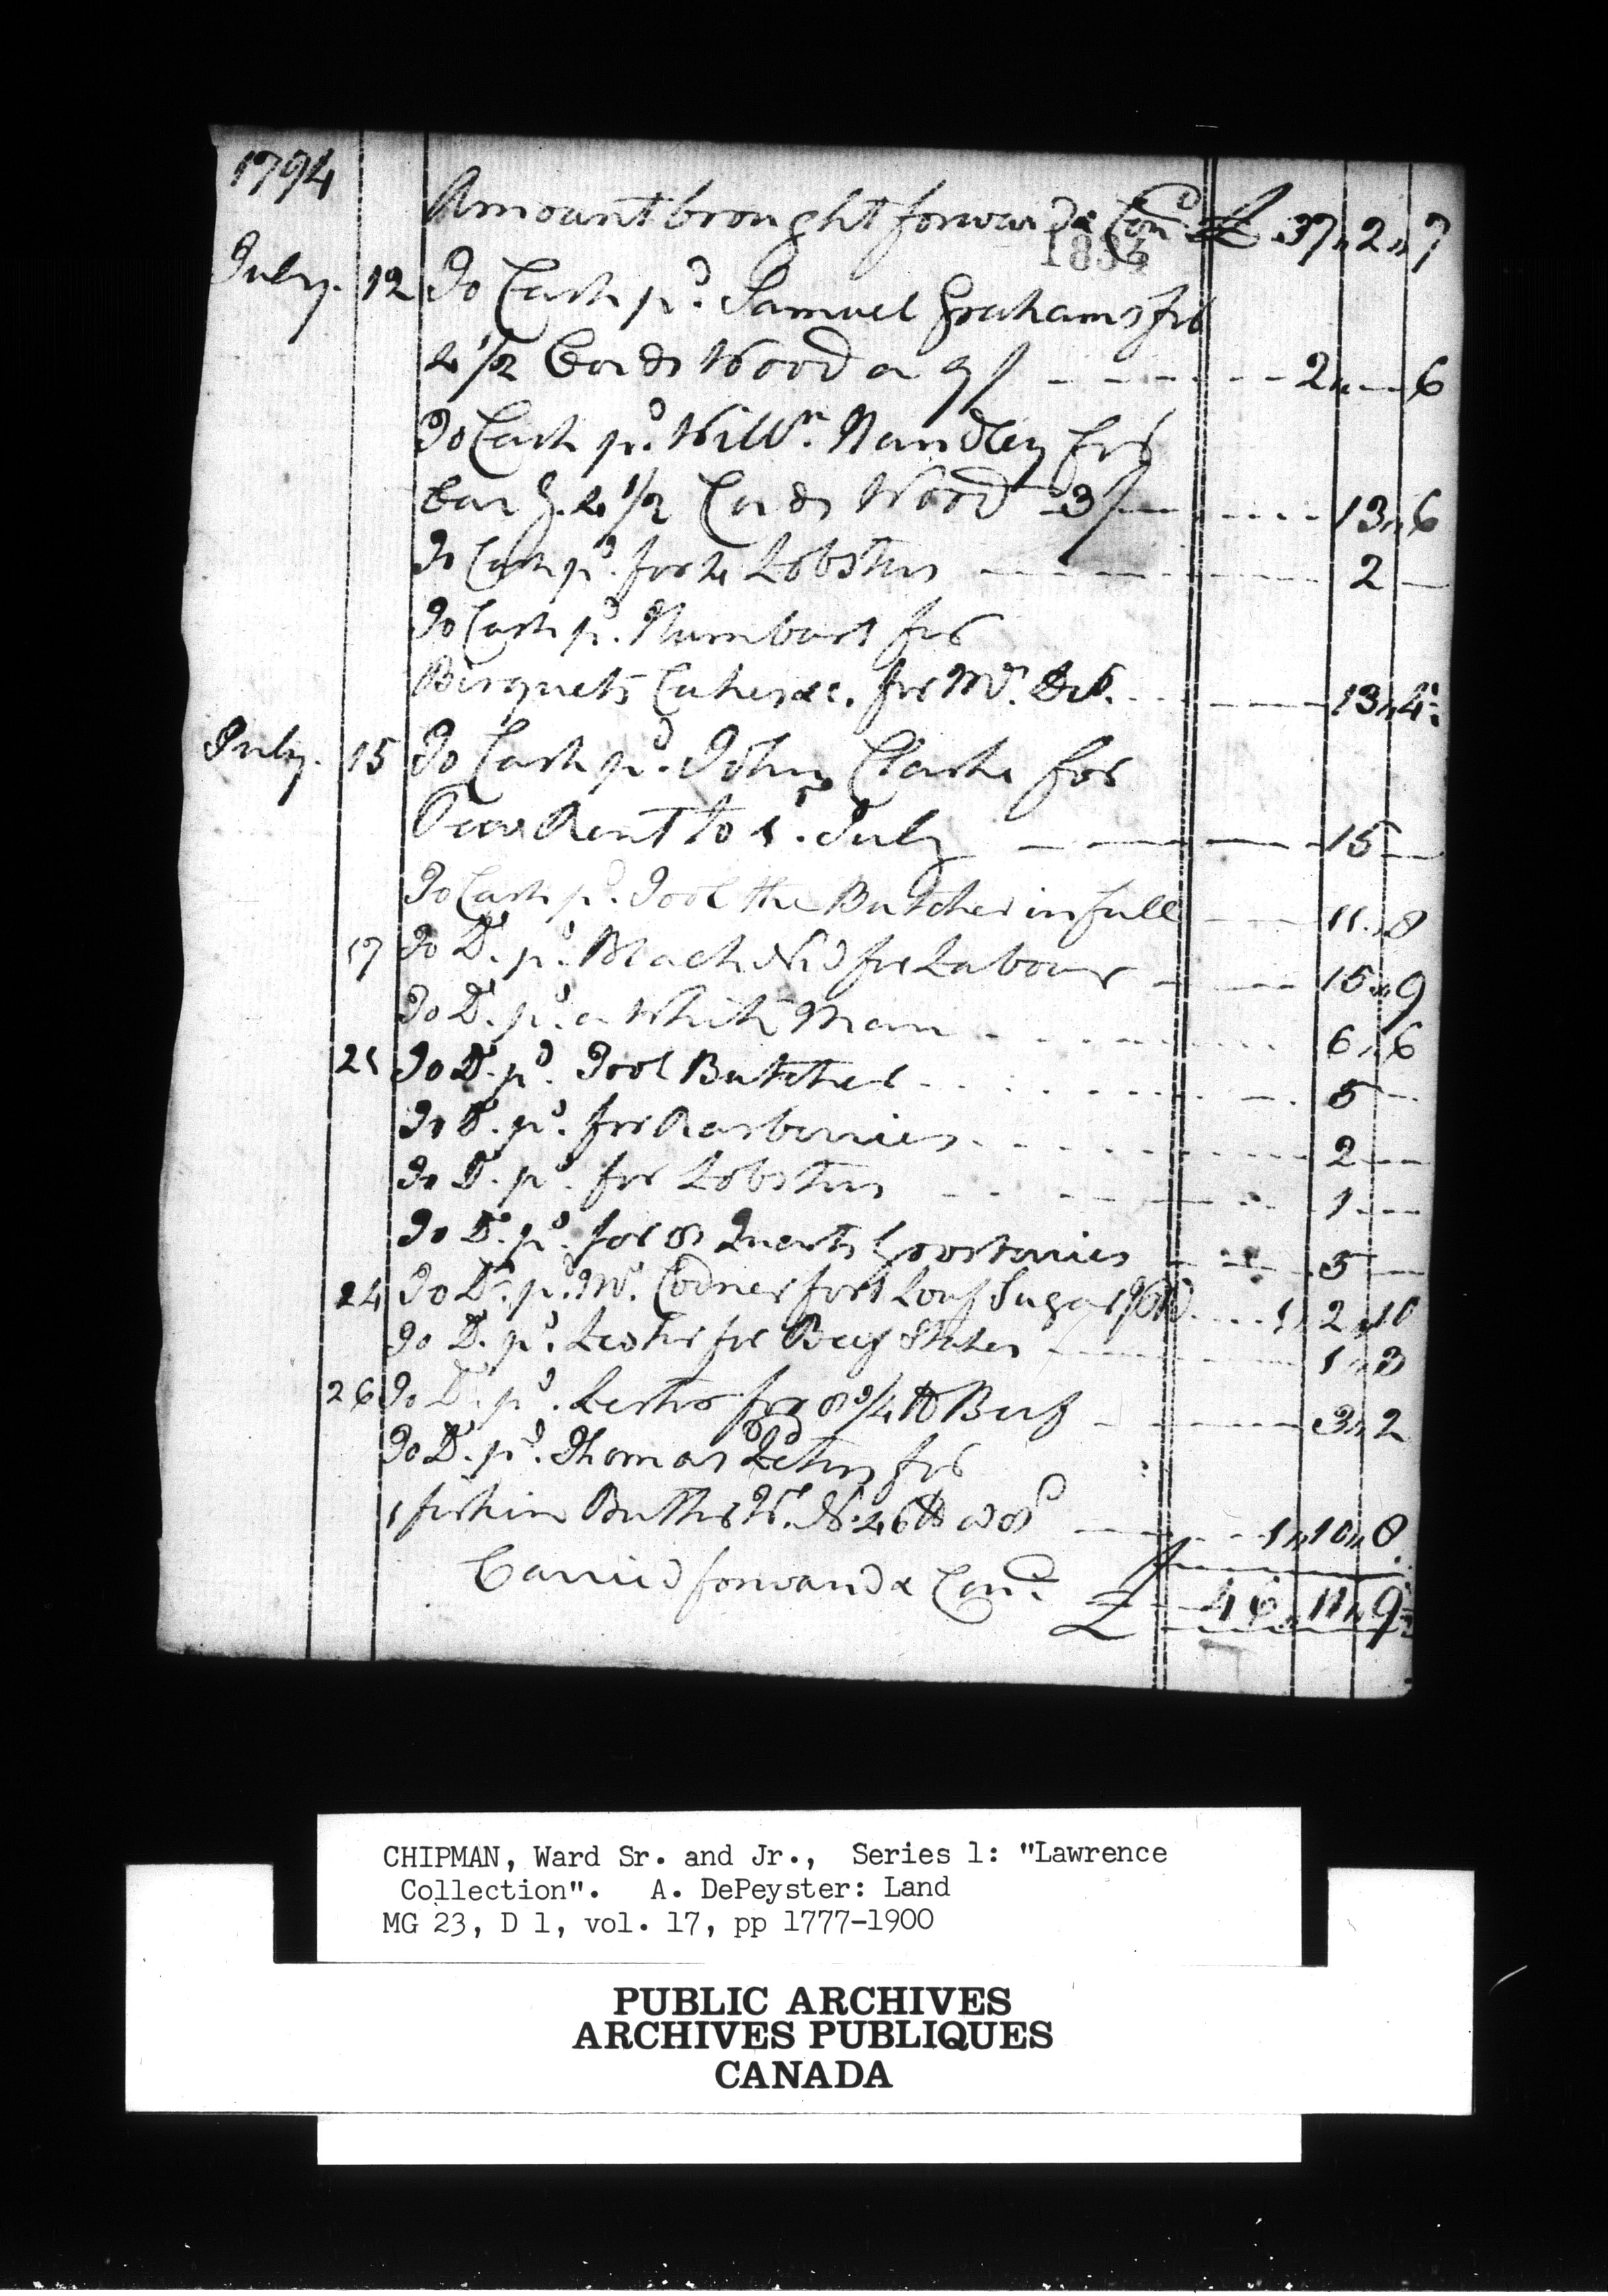 1794
Amount brought forward & Con.d £ 37,, 2,, 7
1854
July. 12 To Cash p.d Samuel Grahams for
4 1/2 Cords Wood a 9/ 2,, — 6
To Cash p.d Will.m Handley for
Car.g 4 1/2 Cords Wood 3/ 13,, 6
To Cash p.d for 4 Lobsters 2 —
To Cash p.d Humbart for
Bisquets Cakes &c. for Mr. 13,, 4
July. 15 To Cash p.d John Clarke for
Pew Rent to 1.st July 15 —
To Cash p.d Tool the Butcher in full 11,, 8
17 To D.o p.d Black Ned for Labour 15,, 9
To D.o p.d a White Man 6,, 6
21 To D.o p.d Tool Butcher 5 —
To D.o p.d for Rasberries 2 —
To D.o p.d for Lobsters 1 —
To D.o p.d for 8 Quarts Gooseberries 5 —
24 To D.o p.d Mr. Codner for 1 Loaf Sugar 1,, 2,, 10
To D.o p.d Lester for Beef Stakes 1,, 3
26 To D.o p.d Lester for 8 3/4 lb Beef 3,, 2
To D.o p.d Thomas for
1 firkin Butter W.t N. 46 lb a 8d 1,, 10,, 8
Carried forward & Con.d £ 46,, 11,, 9
CHIPMAN, Ward Sr. and Jr., Series 1: "Lawrence
Collection". A. DePeyster: Land
MG 23, D 1, vol. 17, pp 1777-1900
PUBLIC ARCHIVES
ARCHIVES PUBLIQUES
CANADA